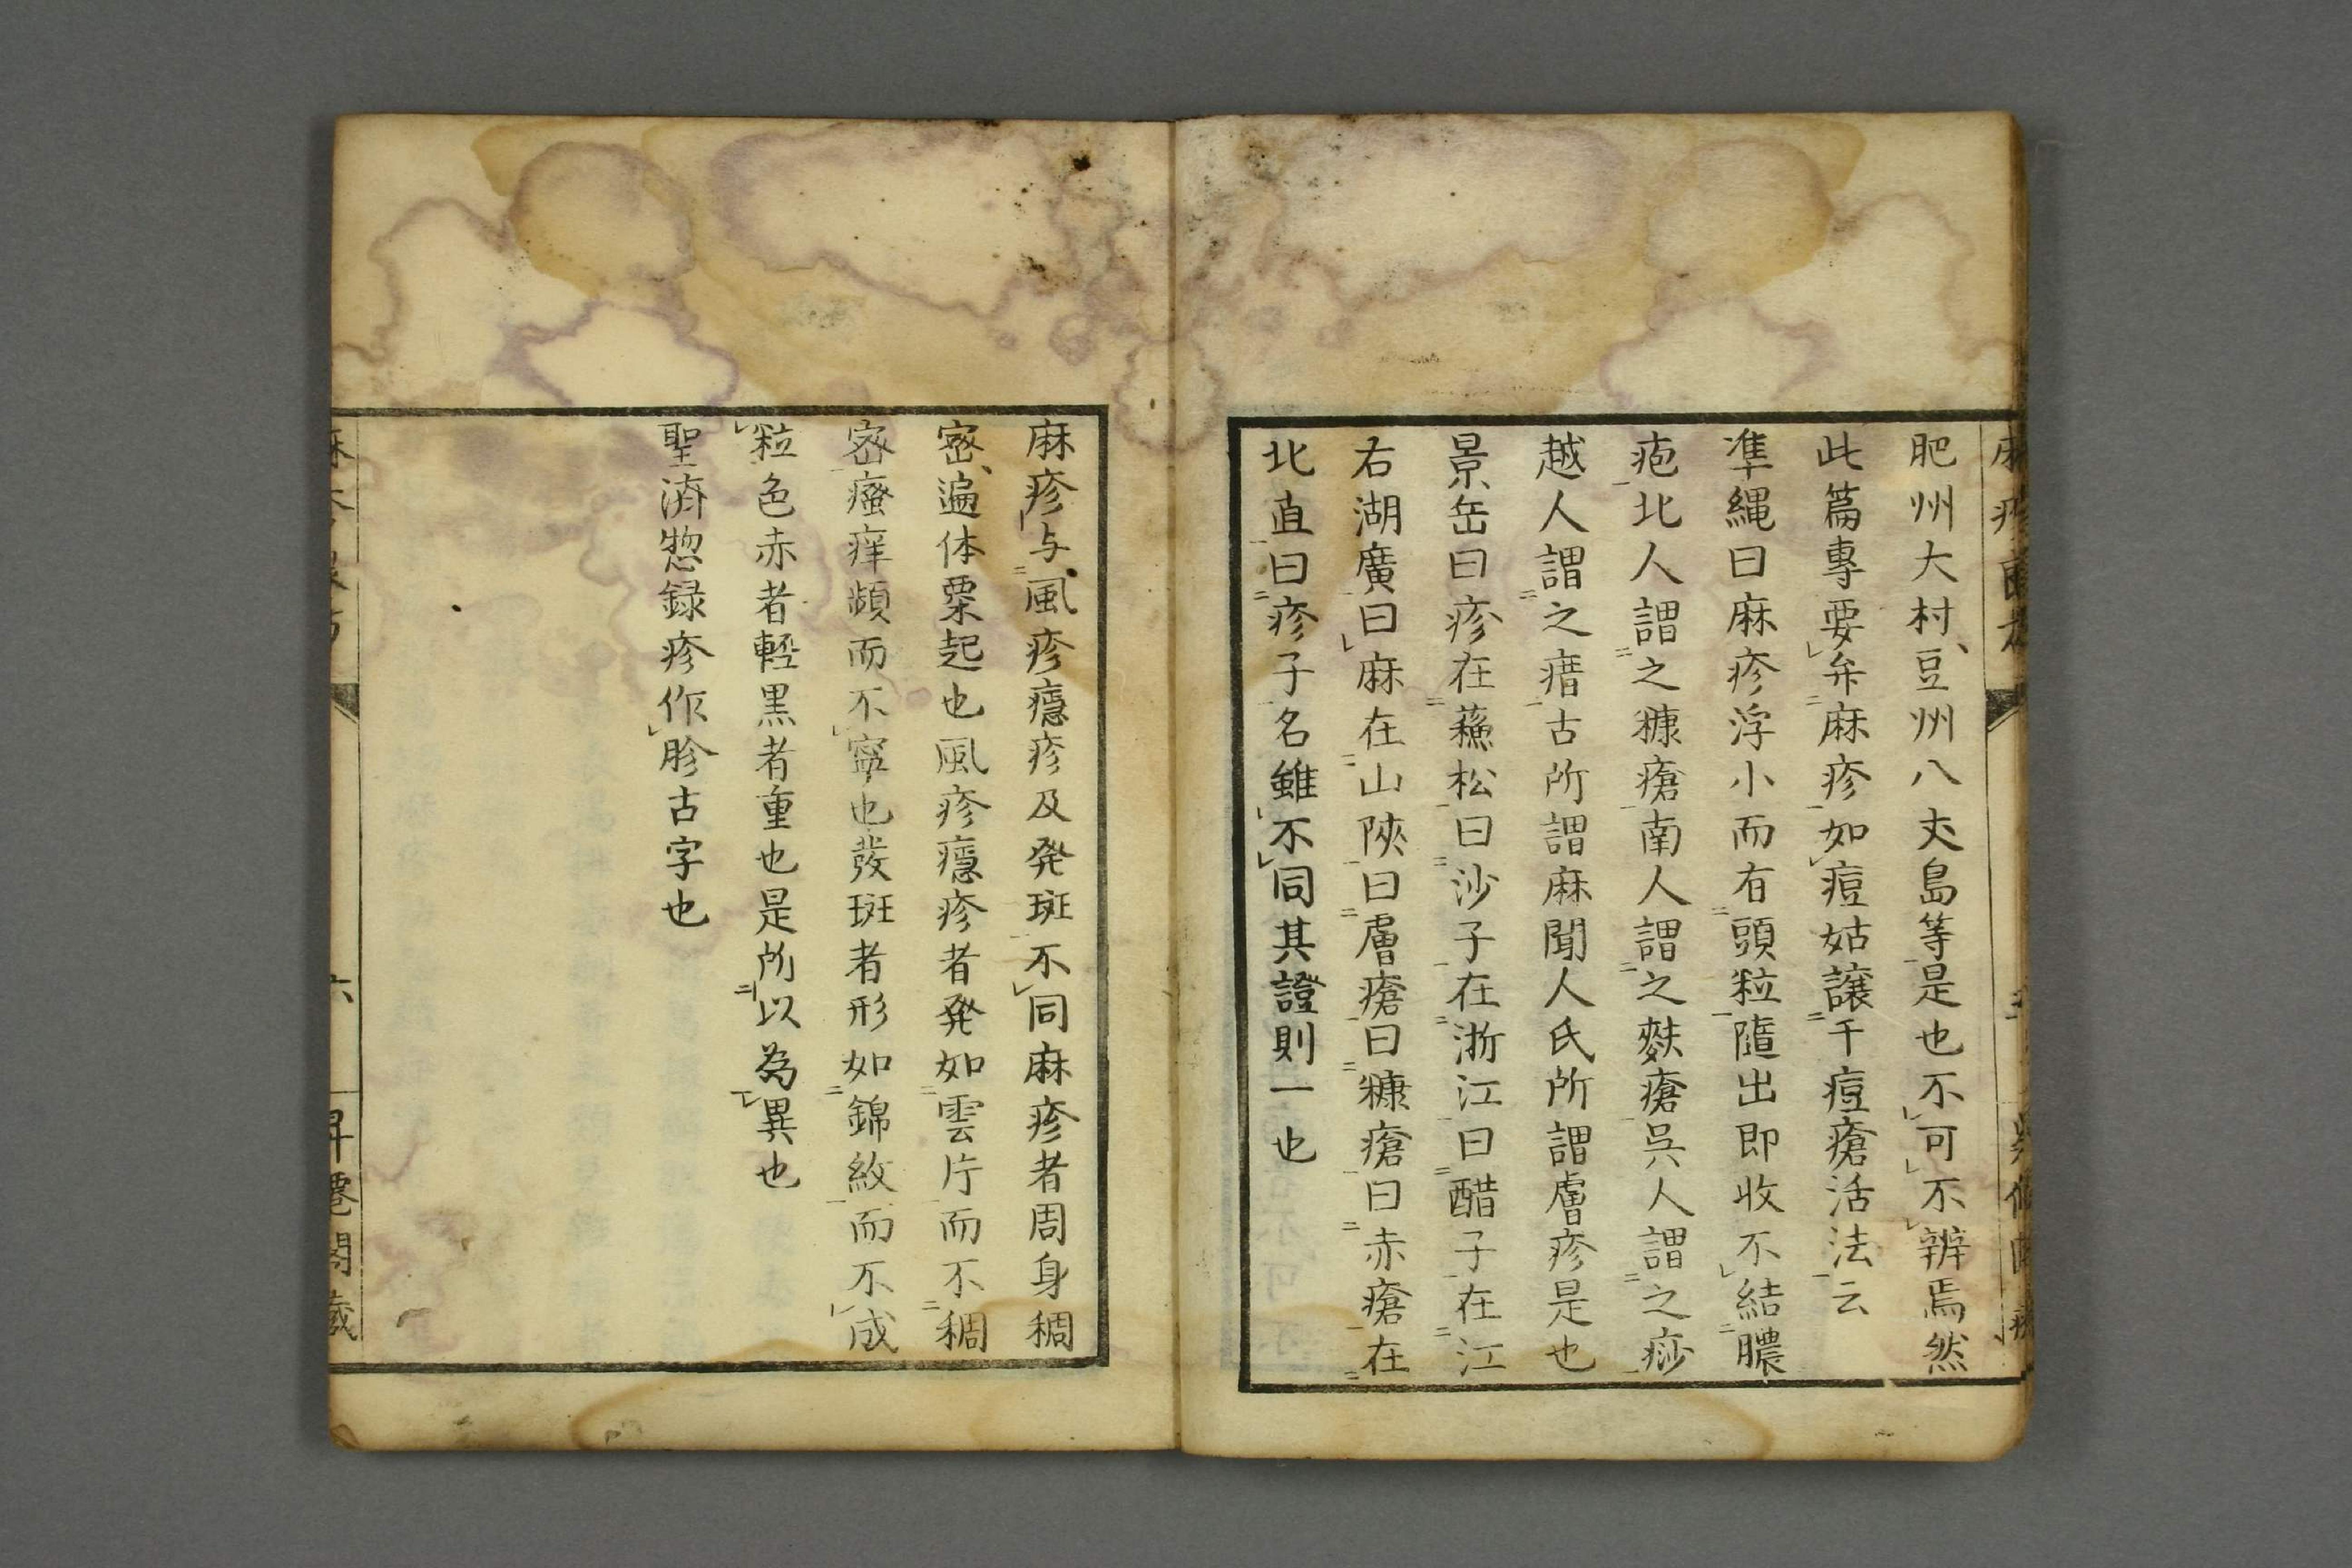 肥州大村、豆州八𠀋島等是也不可不辨焉然
此篇專要弁麻疹如痘姑讓于痘瘡活法云
準繩曰麻疹浮小而有頭粒隨出即收不結膿
疱北人謂之糠瘡南人謂之麩瘡呉人謂之痧
越人謂之㾦古所謂麻聞人氏所謂膚疹是也
景岳曰疹在蘓松曰沙子在浙江曰醋子在江
右湖廣曰麻在山陝曰膚瘡曰糠瘡曰赤瘡在
北直曰疹子名雖不同其證則一也
麻疹与風疹癮疹及発斑不同麻疹者周身稠
密、遍体粟起也風疹癮疹者発如雲片而不稠
密瘙痒頻而不寧也發斑者形如錦紋而不成
粒色赤者輕黒者重也是所以為異也
聖済惣録疹作胗古字也
六